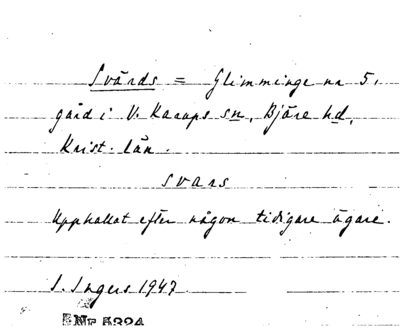 Svärds = Glimminge nr 5,
gård i V. Karups sn, Bjäre hd,
Krist. län.
svars
Uppkallat efter någon tidigare ägare.
I. Ingers 1947
Nr 5324